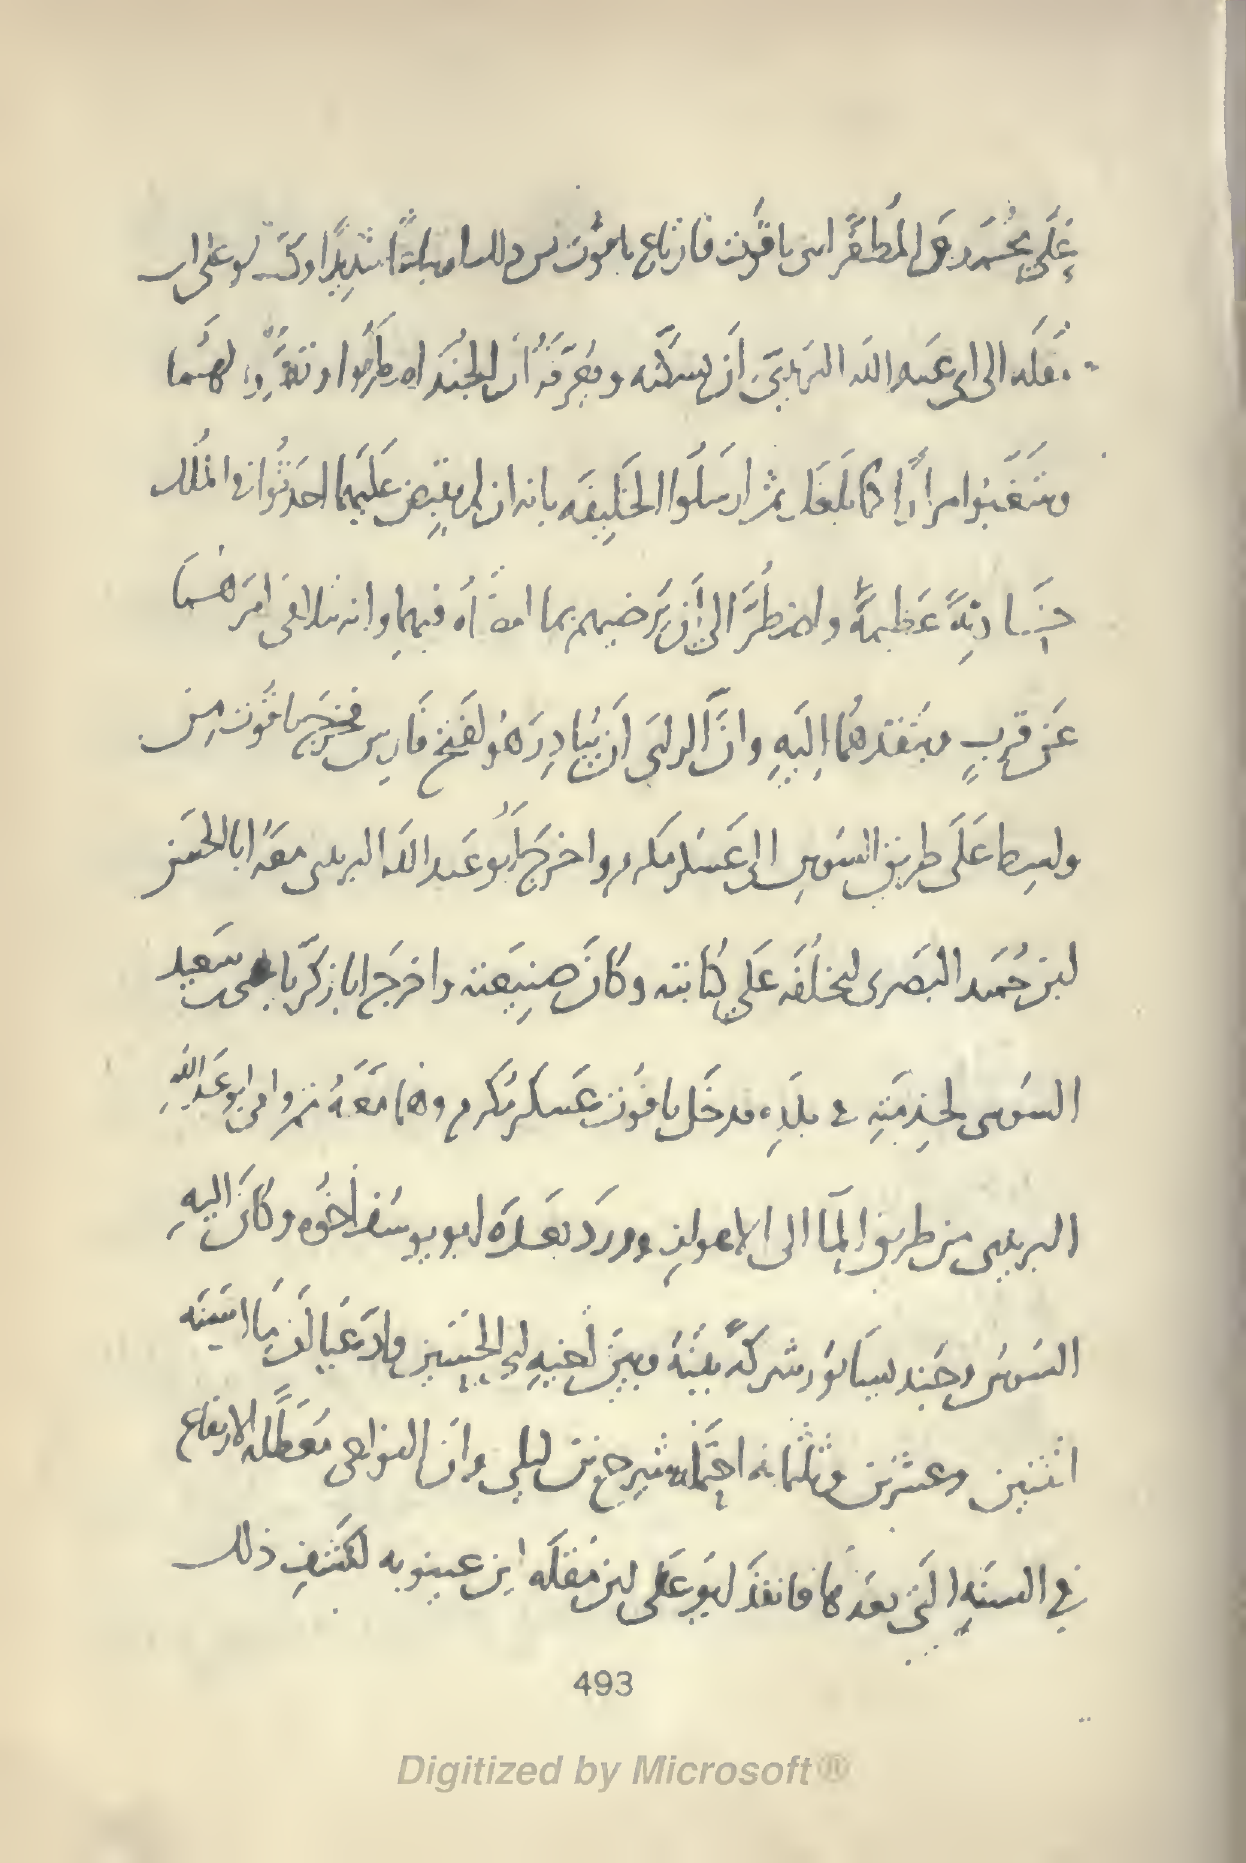 على محمد وعلى المظفر ابنى ياقوت فارتاع ياقوت من ذلك ارتياعا شديدا وكتب ابو على ابن
مقله الى ابى عبد الله البريدى ان يسكنه ويعرفه ان الجند اضطربوا لهما
وشغبوا مرارا كما بلغك ثم ارسلوا الخليفه بانه ان لم يقبض عليهما احدثوا فى الملك
حادثة عظيمة واضطر الى ان يرضيهم بما امضاه فيهما وانه يتلافى امرهما
عن قرب وينفذهما اليه وان الراى ان يبادر هو لفتح فارس فخرج ياقوت من
واسط على طريق السوس الى عسكر مكرم واخرج ابو عبد الله البريدى معه ابا الحسن
ابن حمد البصرى ليخلفه على كتابته وكان صنيعته واخرج ابا زكريا يحيى سعيد
السوسى لخدمته فى بلده فدخل ياقوت عسكر مكرم وهما معه ثم وافى ابو عبد الله
البريدى من طريق الما الى الاهواز وورد بعده ابو يوسف اخوه وكان اليه
السوس وجند يسابور شركة بينه وبين اخيه ابى الحسين وادعيا ان مال سنه
اثنين وعشرين وثلثمائه احتمله مرداويج وان النواحى معطله الارتفاع
فى السنه التى بعدها فانفذ ابو على ابن مقله ابن عينويه لكشف ذلك
493
Digitized by Microsoft®